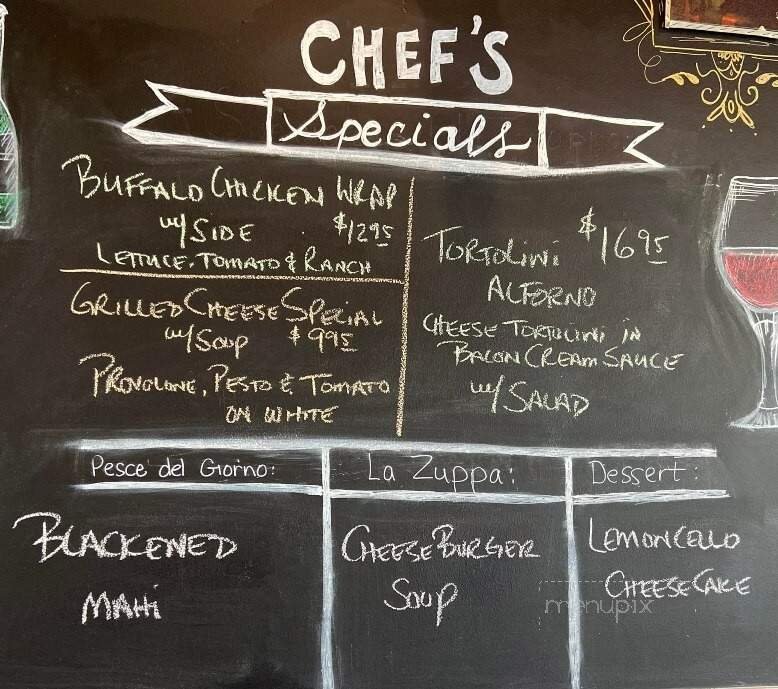 CHEF'S
Specials
BUFFALO CHICKEN WRAP
w/ SIDE $12.95
LETTUCE, TOMATO & RANCH
GRILLED CHEESE SPECIAL
w/ Soup $9.95
PROVOLONE, PESTO & TOMATO
ON WHITE
$16.95
TORTOLINI
ALFORNO
CHEESE TORTOLINI IN
BACON CREAM SAUCE
w/ SALAD
Pesce del Giorno:
BLACKENED
MAHI
La Zuppa:
CHEESE BURGER
Soup
Dessert:
LEMONCELLO
CHEESE CAKE
menupix